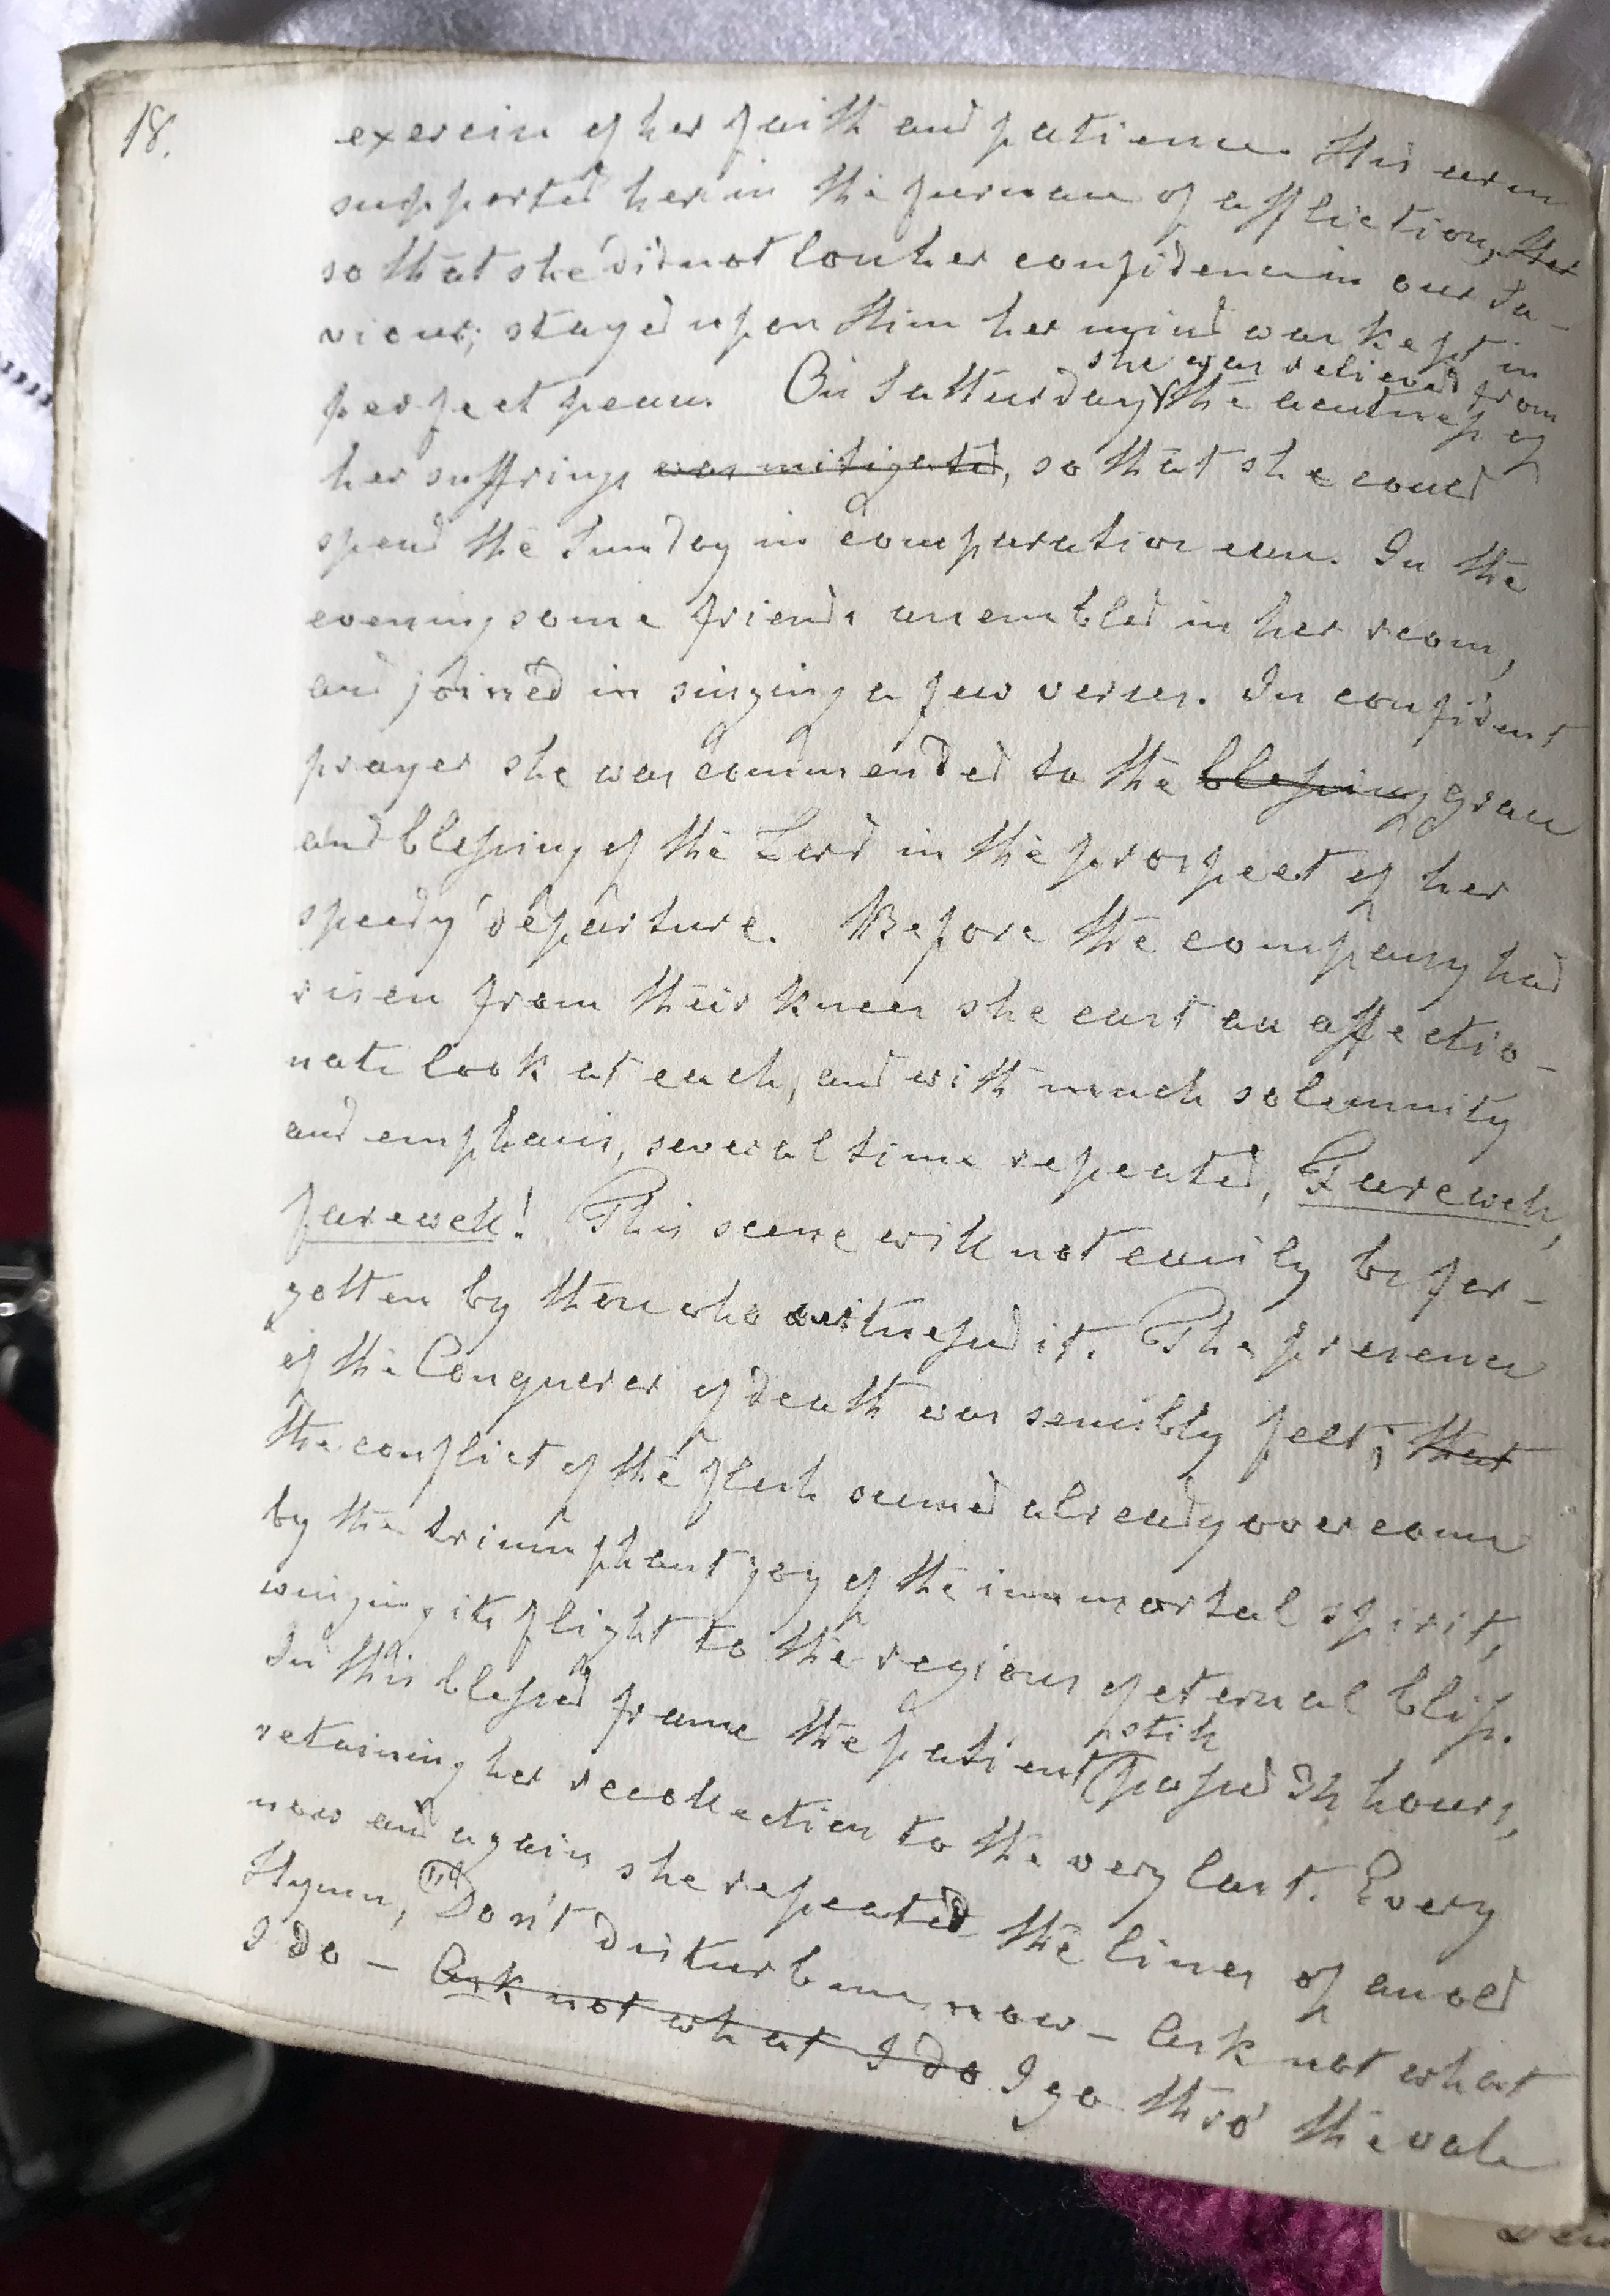 18.
exercise of her faith and patience. His arm
supported her in the furnace of affliction, Her
so that she did not lose her confidence in our Sa-
viour; stayed upon Him her mind was kept in
she was relieved from
perfect peace. On Satturday the acuteness of
her suffrings was mitigated, so that she could
spend the Sunday in comparative ease. In the
evening some friends assembled in her room,
and joined in singing a few verses. In confident
prayer she was commended to the blessing grace
and blessing of the Lord in the prospect of her
speedy departure. Before the company had
risen from their knees she cast an affectio-
nate look at each, and with much solemnity
and emphasis, several time repeated, Farewell,
farewell! This scene will not easily be for-
gotten by those who witnessed it. The presence
of the Conquerer of death was sensibly felt; that
the conflict of the flesh seemed already overcome
by the triumphant joy of the immortal spirit,
winging its flight to the regions of eternal bliss.
still
In this blessed frame the patient passed 24 hours,
retaining her recollection to the very last. Every
now and again she repeated the lines of an old
Hymn, "Don't disturb me now – Ask not what
I do – Ask not what I do I go thro' the vale